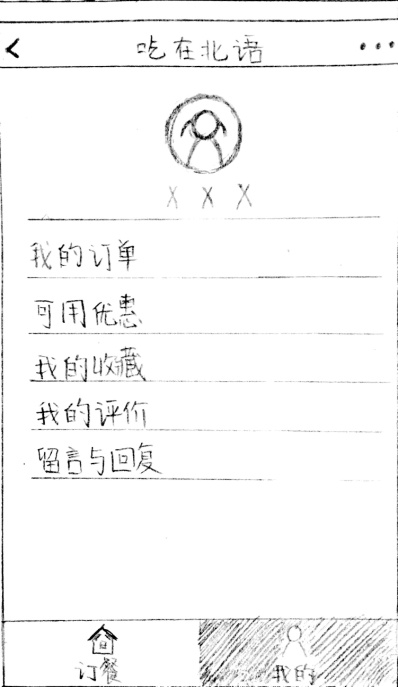 吃在北语
X X X
我的订单
可用优惠
我的收藏
我的评价
留言与回复
订餐
我的